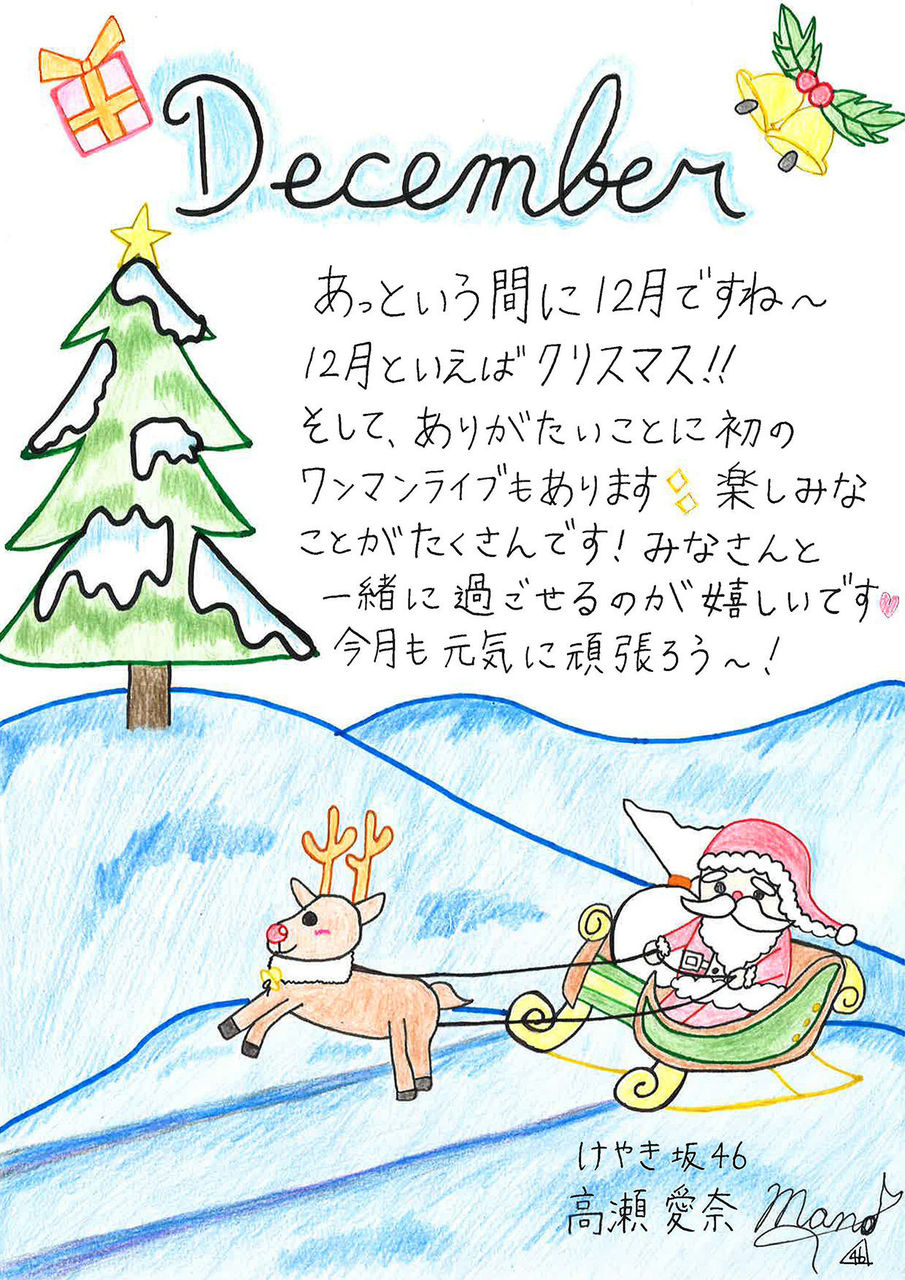 December
あっという間に12月ですね〜
12月といえばクリスマス!!
そして、ありがたいことに初の
ワンマンライブもあります 楽しみな
ことがたくさんです!みなさんと
一緒に過ごせるのが嬉しいです
今月も元気に頑張ろう〜!
けやき坂46
高瀬愛奈 mana
46